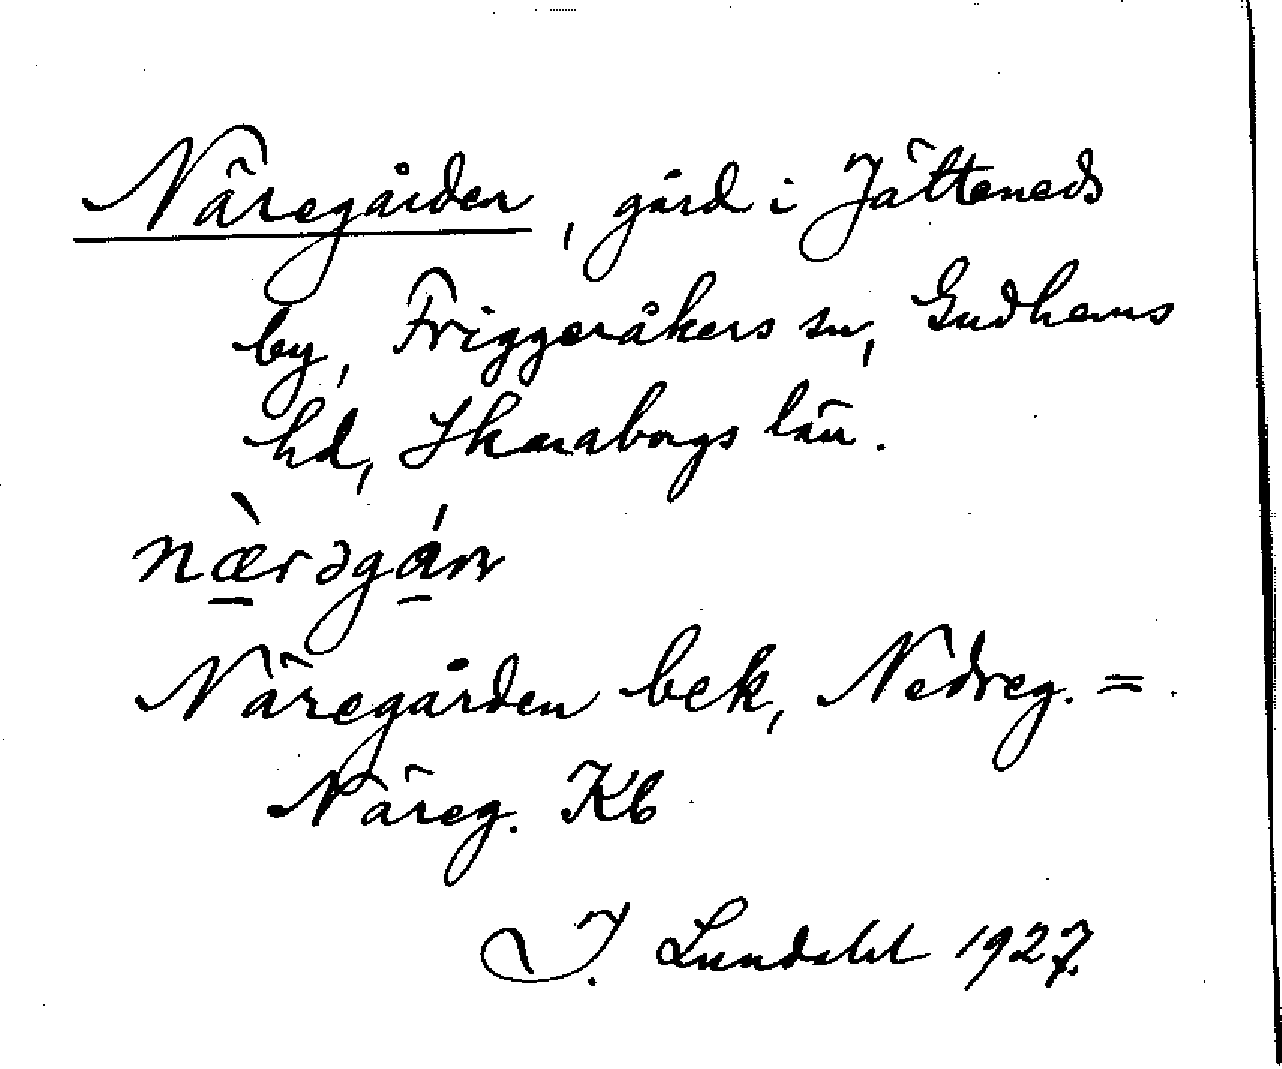 Näregården, gård i Jätteneds
by, Friggeråkers sn, Gudhems
hd, Skaraborgs län.
Näregården bek, Nedreg. =
Näreg. Kb
I. Lundahl 1927.